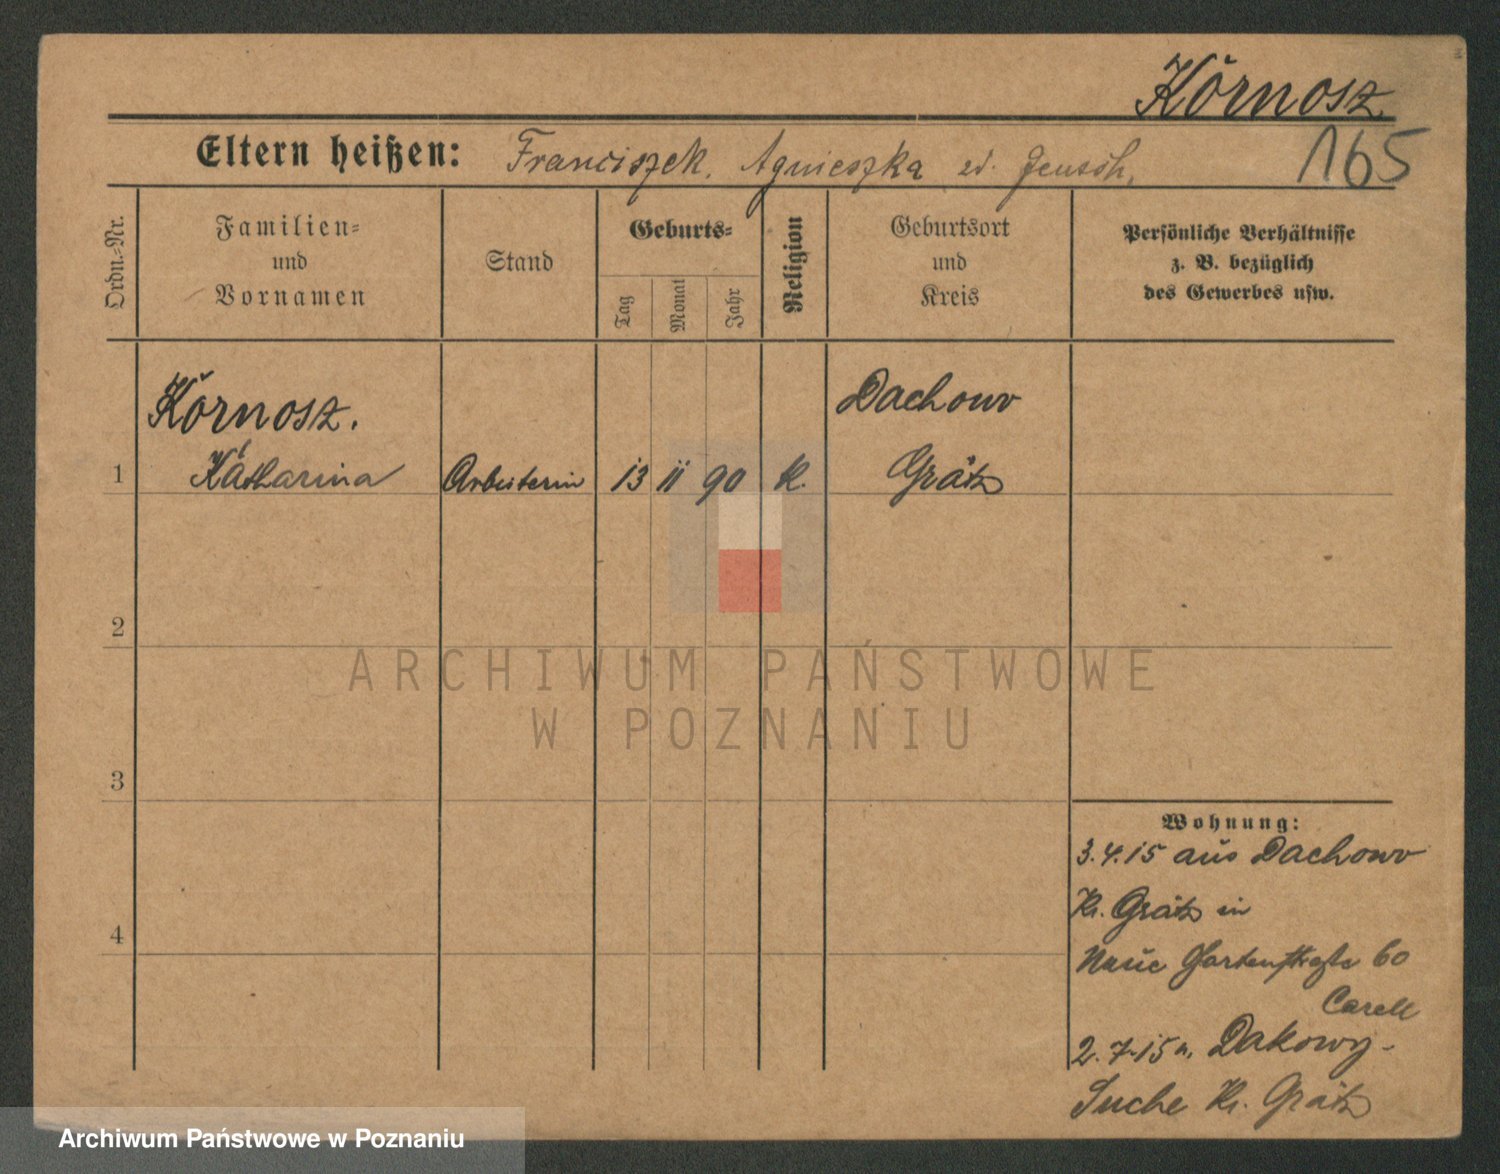 Körnosz.
165
Eltern heißen: Franciszek. Agnieszka zd.
Ordn.-Nr.
Familien-
und
Vornamen
Stand
Geburts-
Tag
Monat
Jahr
Religion
Geburtsort
und
Kreis
Persönliche Verhältnisse
z. B. bezüglich
des Gewerbes usw.
Körnosz.
Dachowo
1 Katharina Arbeiterin 13 11 90 K. Grätz
2
3
4
Wohnung:
3.4.15 aus Dachowo
Kr. Grätz in
Neue Gartenstraße 60
2.7.15 n. Dakowy-
Suche Kr. Grätz
ARCHIWUM PAŃSTWOWE
W POZNANIU
Archiwum Państwowe w Poznaniu